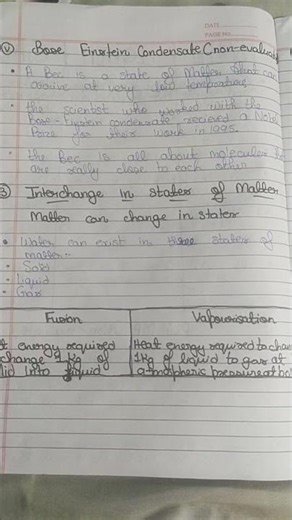 DATE
PAGE NO.
(v) Bose Einstein Condensate (non-evaluative
• A Bec is a state of Matter that can
arrive at very low temperature
• the scientist who worked with the
Bose-Einstein condensate recieved a Noble
Prize for their work in 1995.
• the Bec is all about molecules
are really close to each other
③ Interchange in states of Matter
Matter can change in states
• Water can exist in three states of
matter-
• Solid
• Liquid
• Gas
Fusion
t energy required
change 1 kg of
lid into liquid
Vapourisation
Heat energy required to chan
1kg of liquid to gas at
atmospheric pressure at